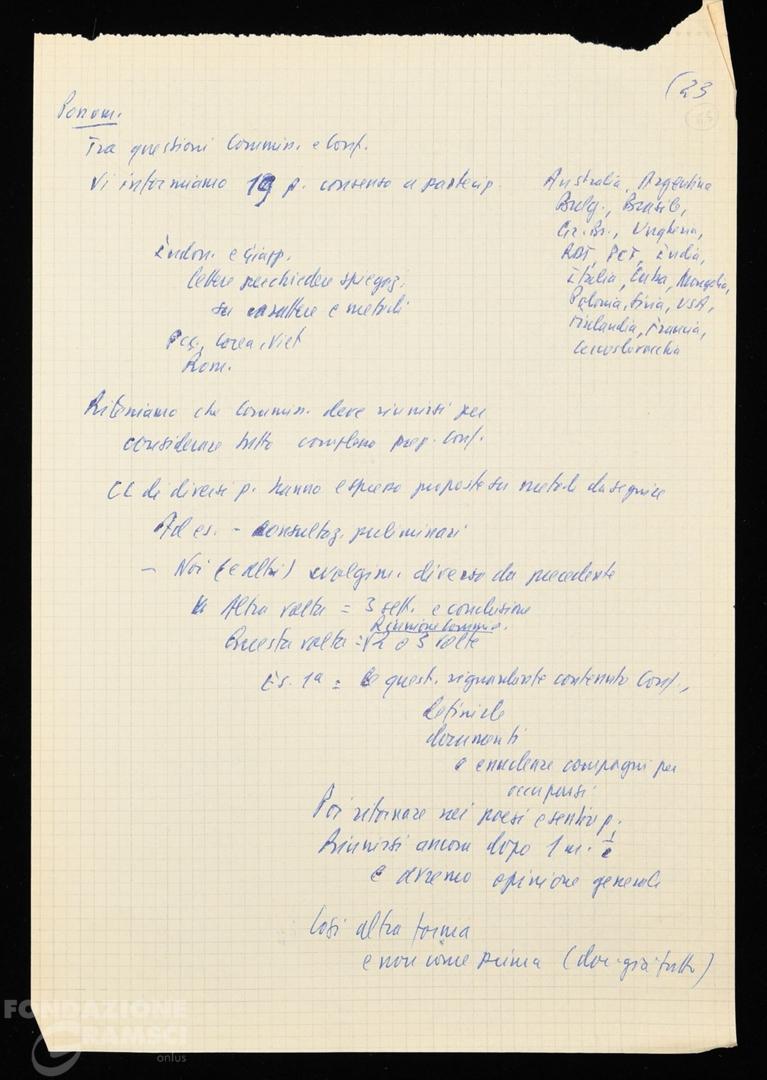 (23
Ponom.
Tra questioni Commin. e Conf.
Vi informiamo 19 p. consenso a partecip.
Australia, Argentina
Bulg., Brasile,
Gr. Br., Ungheria,
RDT, PCT, India,
Italia, Cuba, Mongolia,
Polonia, Siria, USA,
Finlandia, Francia,
Cecoslovacchia
Indon. e Giapp.
lettere per chiedere spiegaz.
su carattere e metodi
Pcc, Corea, Viet
Rom.
Riteniamo che Commin. deve riunirsi per
considerare tutto complesso prep. Conf.
CC di diversi p. hanno espresso proposte su metodi da seguire
Ad es. - consultaz. preliminari
- Noi (e altri) svolgim. diverso da precedente
Altra volta = 3 sett. e conclusione
Riunione Commis.
Questa volta = 2 o 3 volte
Es. 1ª = le quest. riguardante contenuto Conf.,
definirle
documenti
e enucleare compagni per
occuparsi
Poi ritornare nei paesi e sentire p.
Riunirsi ancora dopo 1 m. ½
e avremo opinione generale
Così altra forma
e non come prima (doc. già fatto)
FONDAZIONE
GRAMSCI
onlus